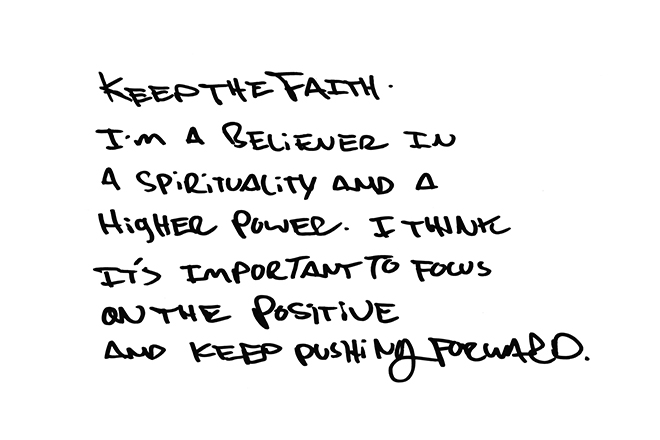 KEEP THE FAITH.
I'M A BELIEVER IN
A SPIRITUALITY AND A
HIGHER POWER. I THINK
IT'S IMPORTANT TO FOCUS
ON THE POSITIVE
AND KEEP PUSHING FORWARD.